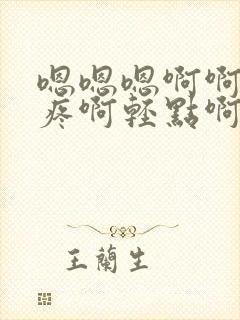 嗯嗯嗯啊啊
疼啊輕點啊
王蘭生